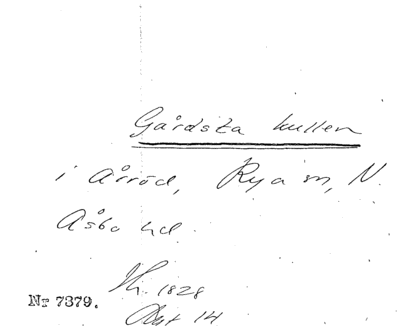 Gårdsta kullen
i Årröd, Rya sn, N.
Åsbo hd.
Nr 7379.
1828
14